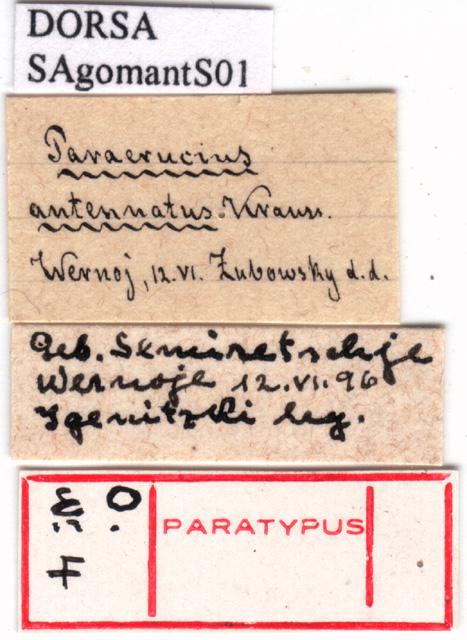 DORSA
SAgomantS01
Paraerucius
antennatus Krauss.
Wernoj, 12.VI. Zubowsky d. d.
Geb. Semiretschje
Wernoje 12.VI.96
leg.
PARATYPUS